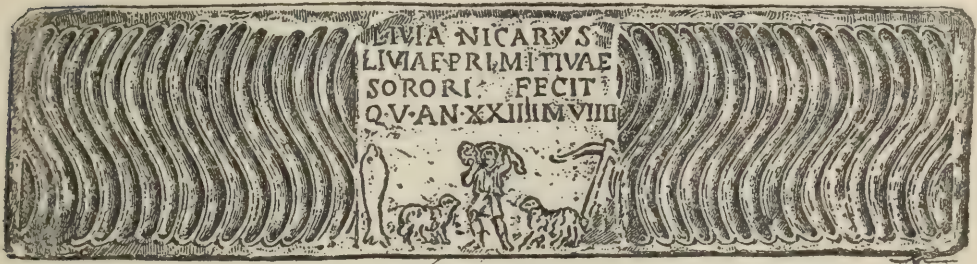 LIVIA NICARVS
LIVIAE·PRIMITIVAE
SORORI FECIT
QV·AN·XXIIIIMVIIII